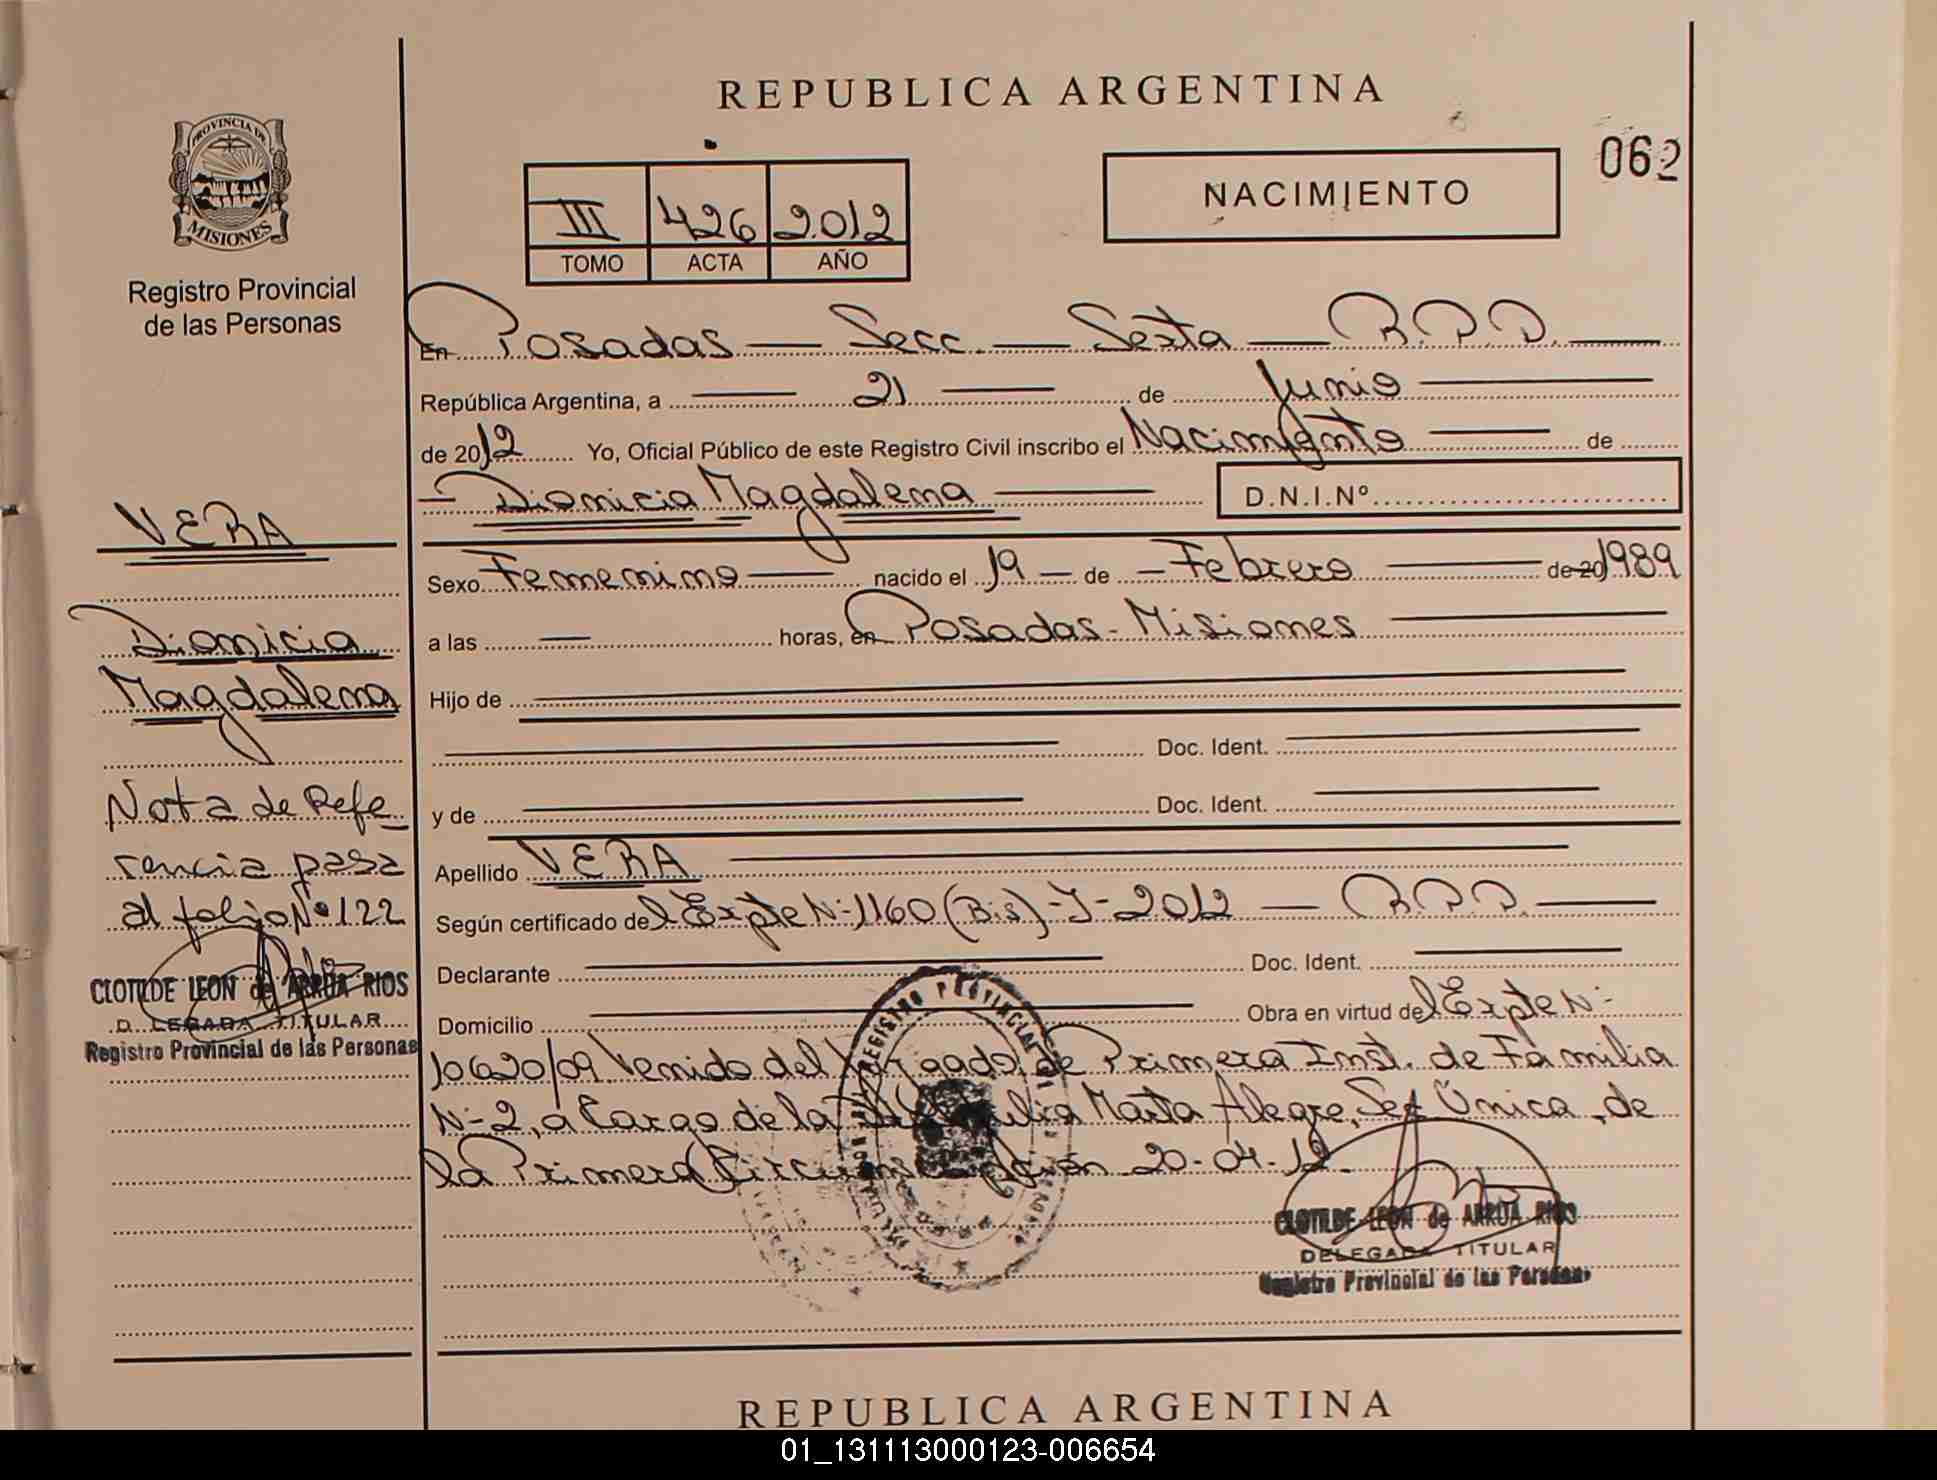 REPUBLICA ARGENTINA
PROVINCIA DE
MISIONES
Registro Provincial
de las Personas
III 426 2012
TOMO ACTA AÑO
NACIMIENTO
062
En Posadas — Secc. — Sexta — R.P.P.
República Argentina, a — 21 — de Junio
de 2012 Yo, Oficial Público de este Registro Civil inscribo el Nacimiento — de
— Dionicia Magdalena — D.N.I.Nº
Sexo Femenino — nacido el 19 — de — Febrero — de 20 1989
a las — horas, en Posadas - Misiones
Hijo de
Doc. Ident.
y de Doc. Ident.
Apellido VERA
Según certificado del Expte Nº 1160 (Bis) - J - 2012 — R.P.P.
Declarante Doc. Ident.
Domicilio Obra en virtud del Expte Nº
10620/09 Venido del Juzgado de Primera Inst. de Familia
Nº 2, a Cargo de la Marta Alegre, Sec Única, de
la Primera Circunscripción 20-04-12.
CLOTILDE LEON de ARRUA RIOS
DELEGADA TITULAR
Registro Provincial de las Personas
VERA
Dionicia
Magdalena
Nota de Refe
rencia pasa
al folio Nº 122
CLOTILDE LEON de ARRUA RIOS
DELEGADA TITULAR
Registro Provincial de las Personas
REGISTRO PROVINCIAL
REPUBLICA ARGENTINA
01_131113000123-006654